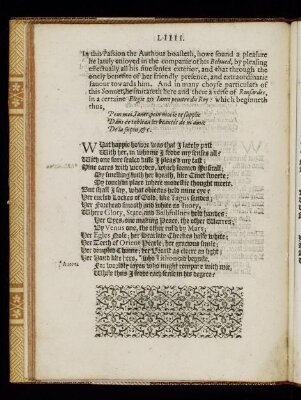 LIIII.
In this Passion the Authour boasteth, howe sound a pleasure
he lately enioyed in the companie of his Beloued, by pleasing
effectually all his fiue senses exterior, and that through the
onely benefite of her friendly presence, and extraordinarie
fauour towards him. And in many choyse particulars of
this Sonnet, he imitateth here and there a verse of Ronsardes,
in a certaine Elegie to Ianet peintre du Roy: which beginneth
thus,
Pein moy, Ianet, pein moy ie te supplie
Dans ce tableau les beautés de m'amie
De la façon, &c.
What happie howre was that I lately past
With her, in whome I fedde my senses all?
With one sure sealed kisse I pleas'd my tast;
Mine eares with woordes, which seemed Musicall;
My smelling with her breath, like Ciuet sweete;
My touch in place where modestie thought meete.
But shall I say, what obiects held mine eye?
Her curled Lockes of Gold, like Tagus sandes;
Her Forehead smooth and white as Iuory,
Where Glory, State, and Bashfullnes held handes:
Her Eyes, one making Peace, the other Warres;
By Venus one, the other rul'd by Mars;
Her Egles Nose; her Scarlate Cheekes halfe white;
Her Teeth of Orient Pearle; her gracious smile;
Her dimpled Chinne; her Breast as cleere as light;
Her Hand like hers, who Tithonus did beguile.
For worldly ioyes who might compare with mee,
While thus I fedde each sense in his degree?